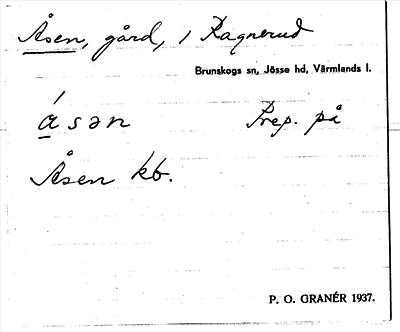 Åsen, gård, i Ragnerud
Brunskogs sn, Jösse hd, Värmlands l.
ǻsən Prep. på
Åsen kb.
P. O. GRANÉR 1937.